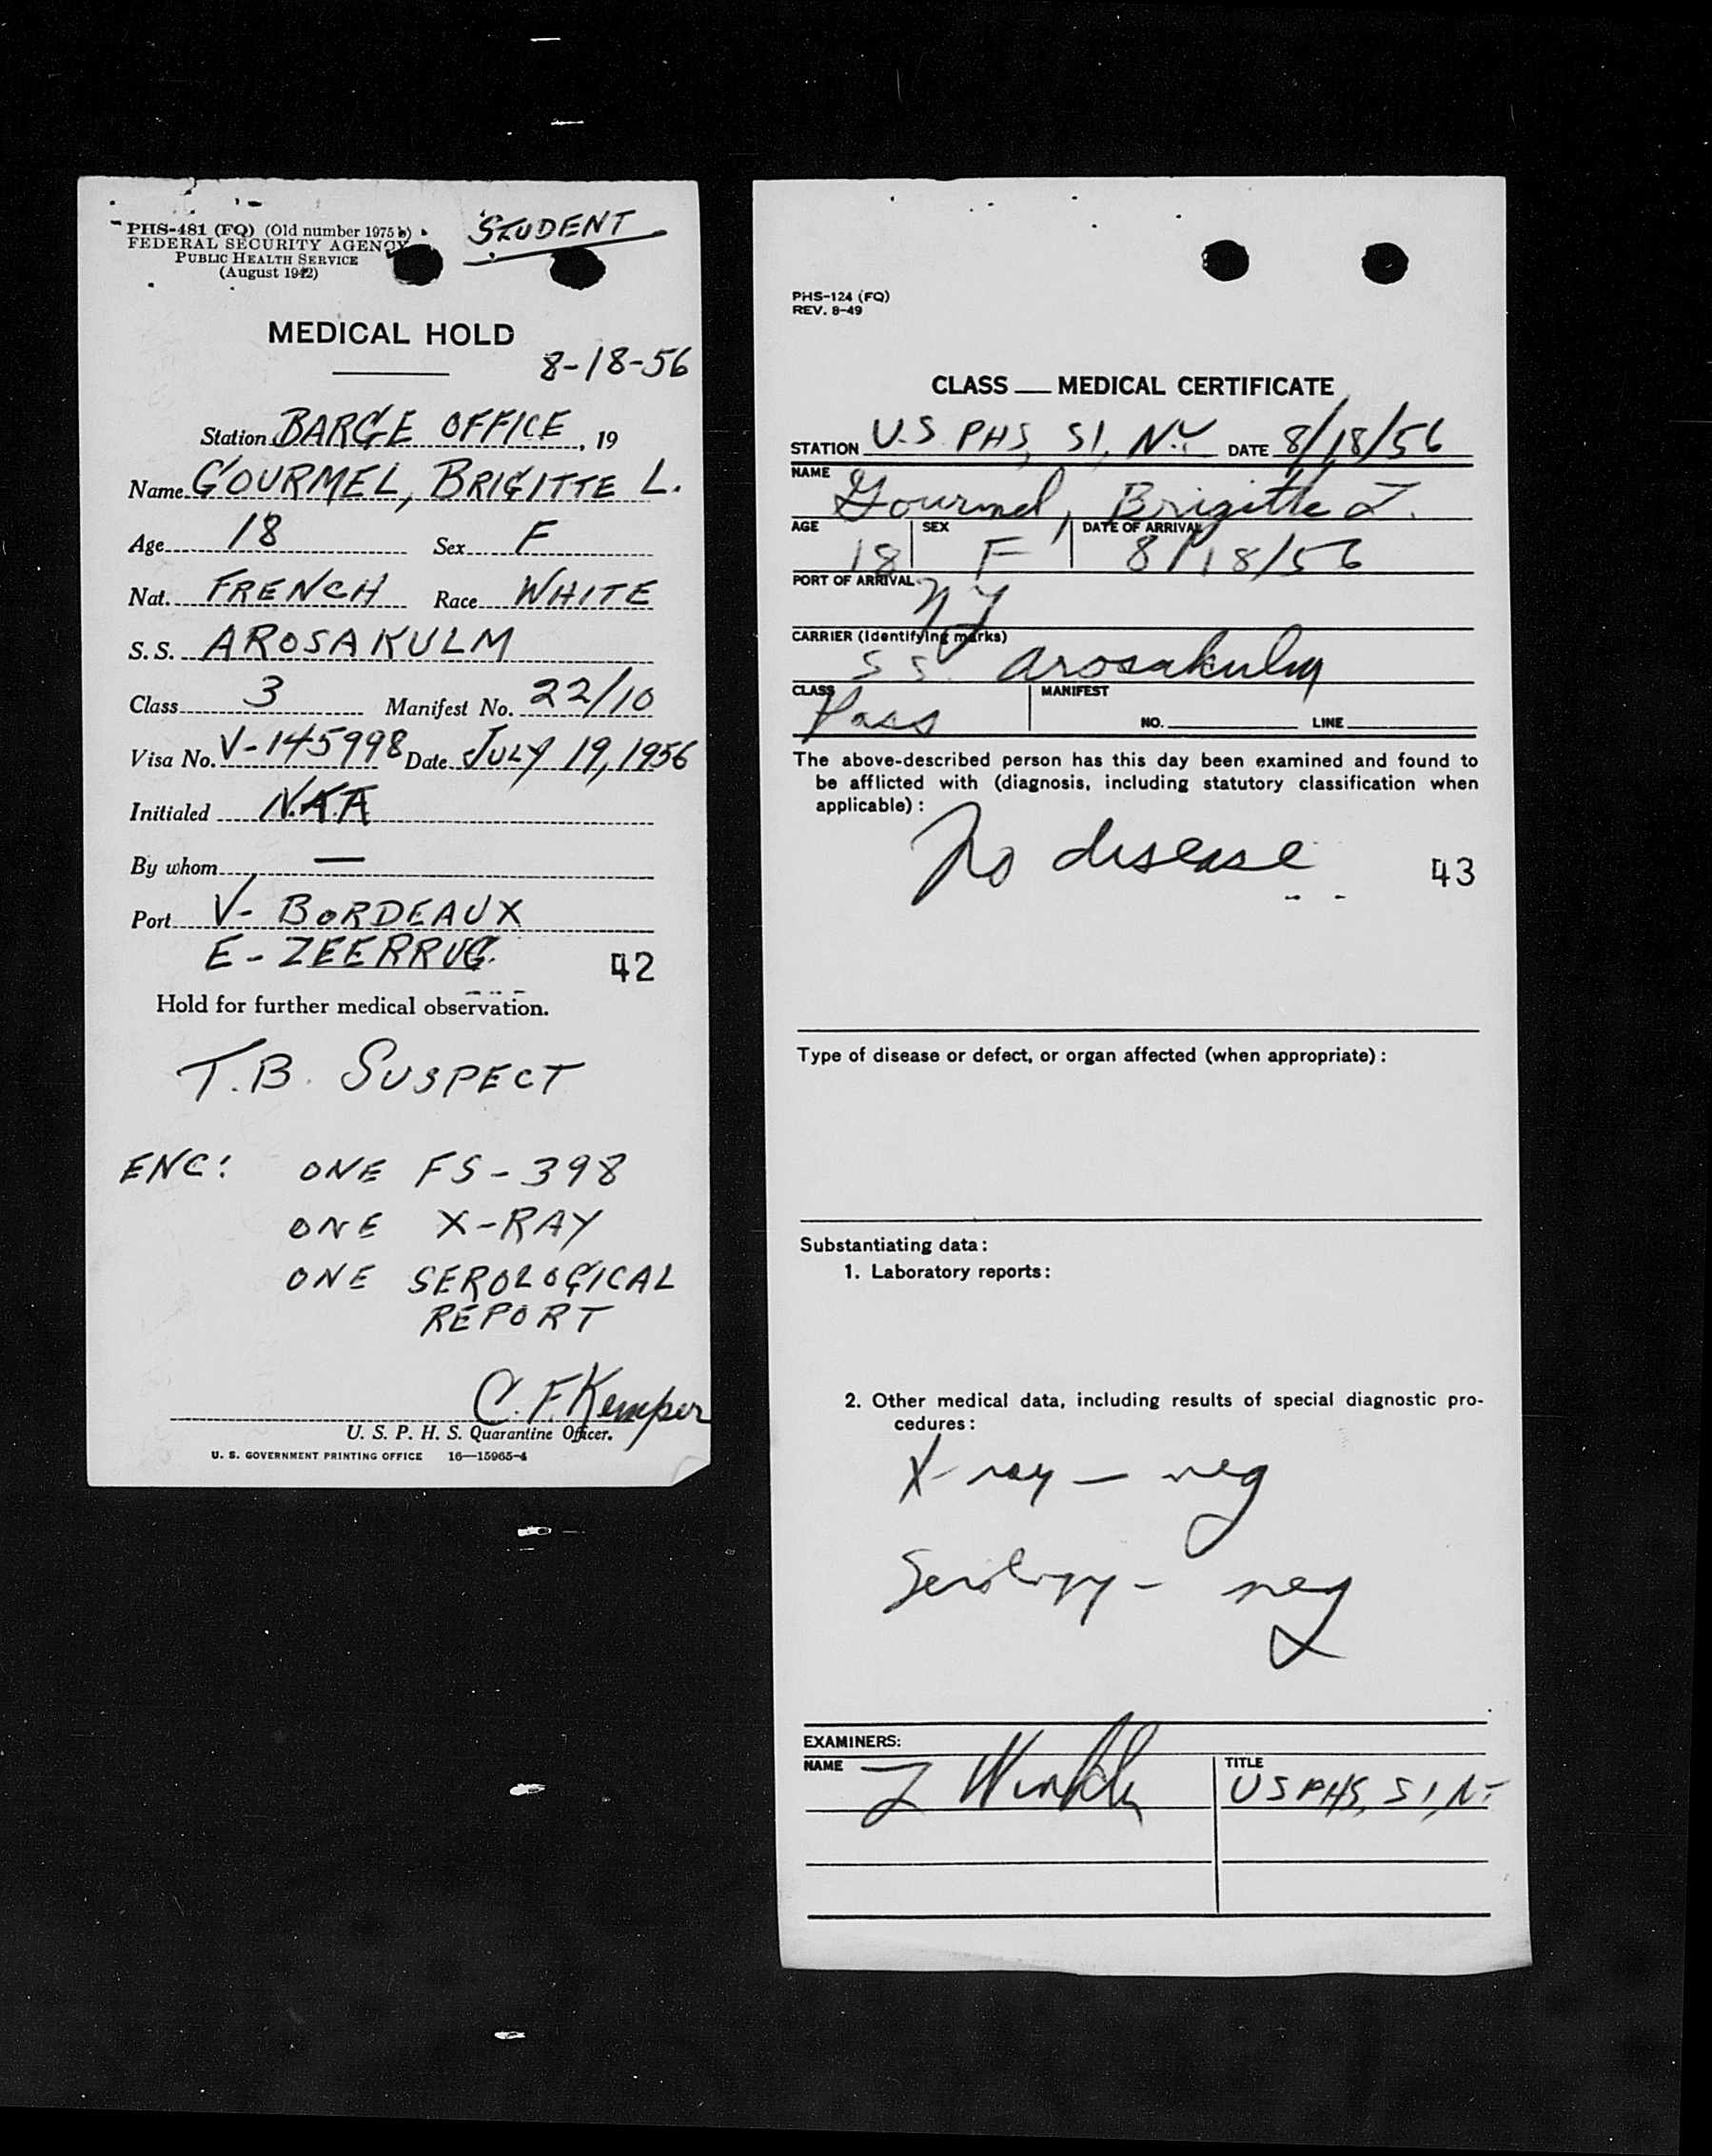 PHS-481 (FQ) (Old number 1975 b)
FEDERAL SECURITY AGENCY
PUBLIC HEALTH SERVICE
(August 1942)
STUDENT
MEDICAL HOLD
8-18-56
Station BARGE OFFICE, 19
Name GOURMEL, BRIGITTE L.
Age 18 Sex F
Nat. FRENCH Race WHITE
S.S. AROSAKULM
Class 3 Manifest No. 22/10
Visa No. V-145998 Date JULY 19, 1956
Initialed N.A.A
By whom —
Port V- BORDEAUX
E- ZEERRUG.
42
Hold for further medical observation.
T.B. SUSPECT
ENC: ONE FS-398
ONE X-RAY
ONE SEROLOGICAL
REPORT
C. F. Kemper
U. S. P. H. S. Quarantine Officer.
U. S. GOVERNMENT PRINTING OFFICE 16—15965-4
PHS-124 (FQ)
REV. 8-49
CLASS MEDICAL CERTIFICATE
STATION U.S. PHS, SI, N.Y. DATE 8/18/56
NAME Gourmel, Brigitte L.
AGE 18 SEX F DATE OF ARRIVAL 8/18/56
PORT OF ARRIVAL NY
CARRIER (Identifying marks)
S S. Arosakulm
CLASS Pass MANIFEST NO. LINE
The above-described person has this day been examined and found to
be afflicted with (diagnosis, including statutory classification when
applicable):
No disease
43
Type of disease or defect, or organ affected (when appropriate):
Substantiating data:
1. Laboratory reports:
2. Other medical data, including results of special diagnostic pro-
cedures:
X-ray — neg
Serology - neg
EXAMINERS:
NAME TITLE
USPHS, SI, N